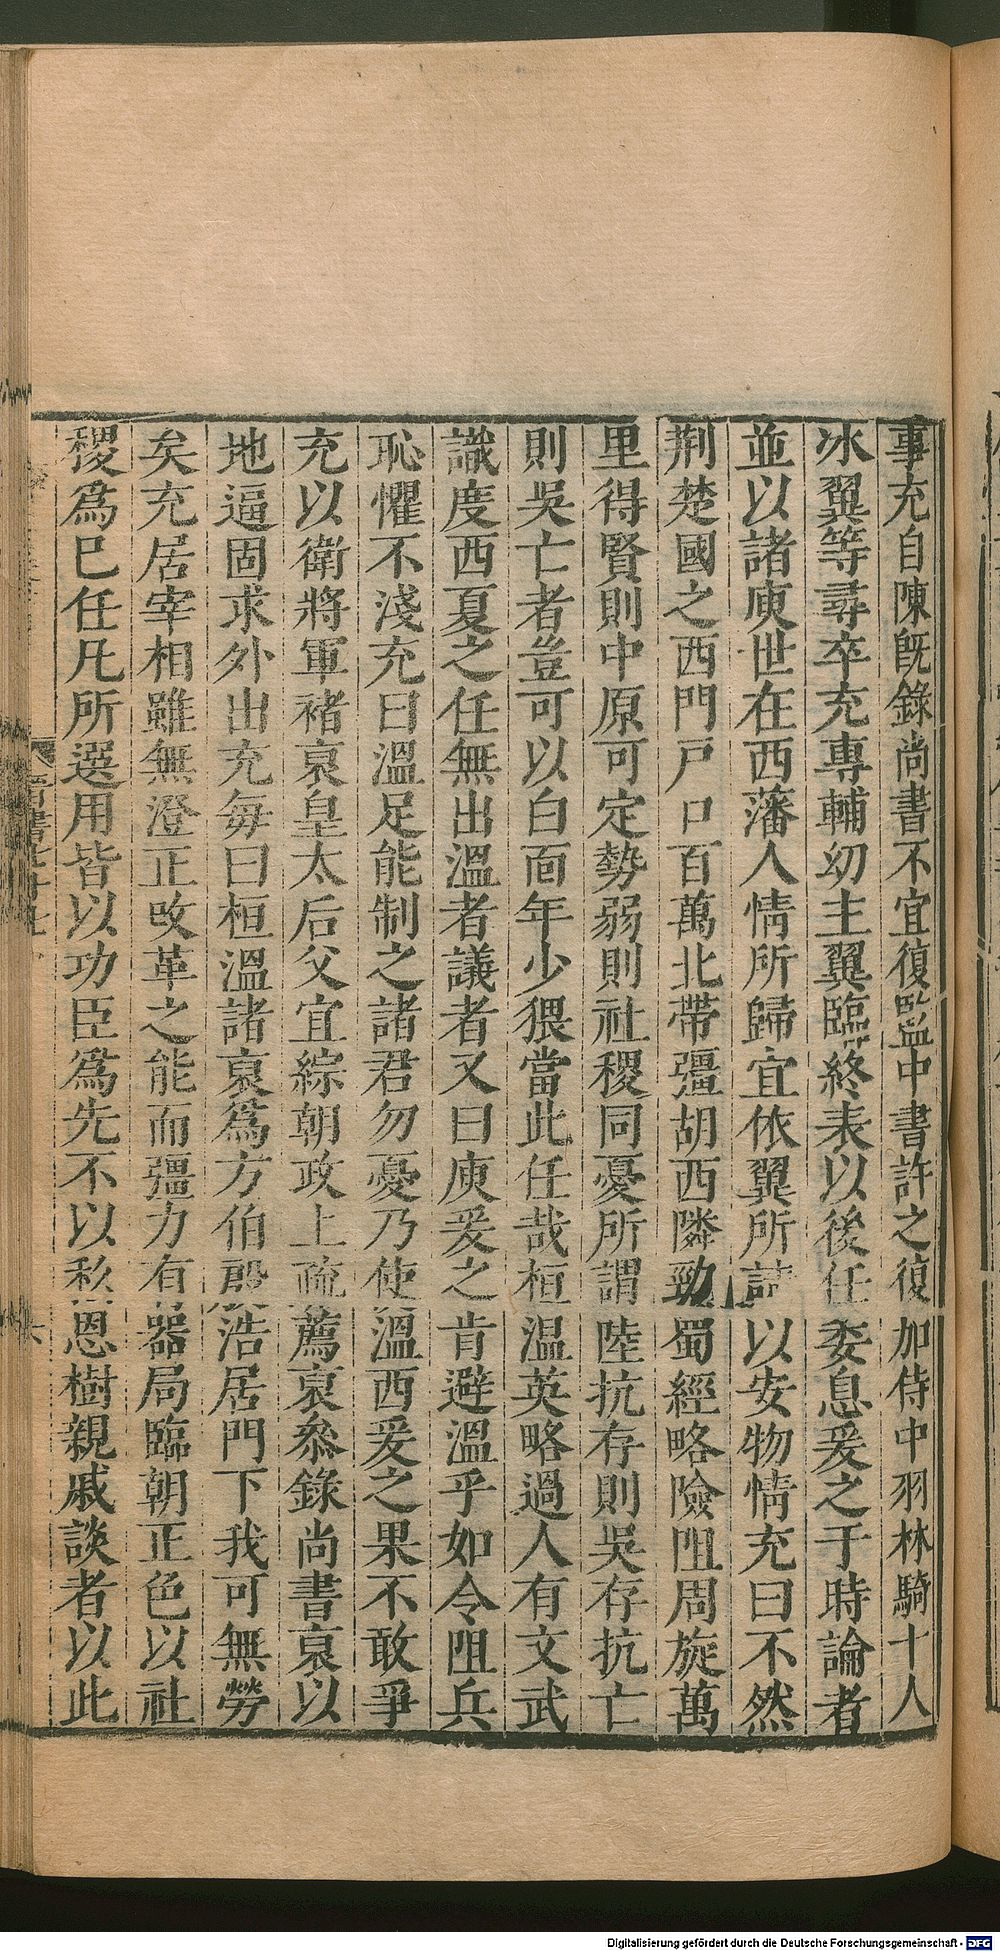 事充自陳旣錄尚書不宜復監中書許之復加侍中羽林騎十人
冰翼等尋卒充專輔幼主翼臨終表以後任委息爰之于時論者
並以諸庾世在西藩人情所歸宜依翼所請以安物情充曰不然
荆楚國之西門戸口百萬北帶彊胡西隣勁蜀經略險阻周旋萬
里得賢則中原可定勢弱則社稷同憂所謂陸抗存則吳存抗亡
則吳亡者豈可以白面年少猥當此任哉桓温英略過人有文武
識度西夏之任無出溫者議者又曰庾爰之肯避溫乎如令阻兵
恥懼不淺充曰溫足能制之諸君勿憂乃使溫西爰之果不敢爭
充以衛將軍褚裒皇太后父宜綜朝政上疏薦裒叅錄尚書裒以
地逼固求外出充每曰桓溫諸裒爲方伯殷浩居門下我可無勞
矣充居宰相雖無澄正改革之能而彊力有器局臨朝正色以社
稷爲已任凡所選用皆以功臣爲先不以私恩樹親戚談者以此
Digitalisierung gefördert durch die Deutsche Forschungsgemeinschaft - DFG